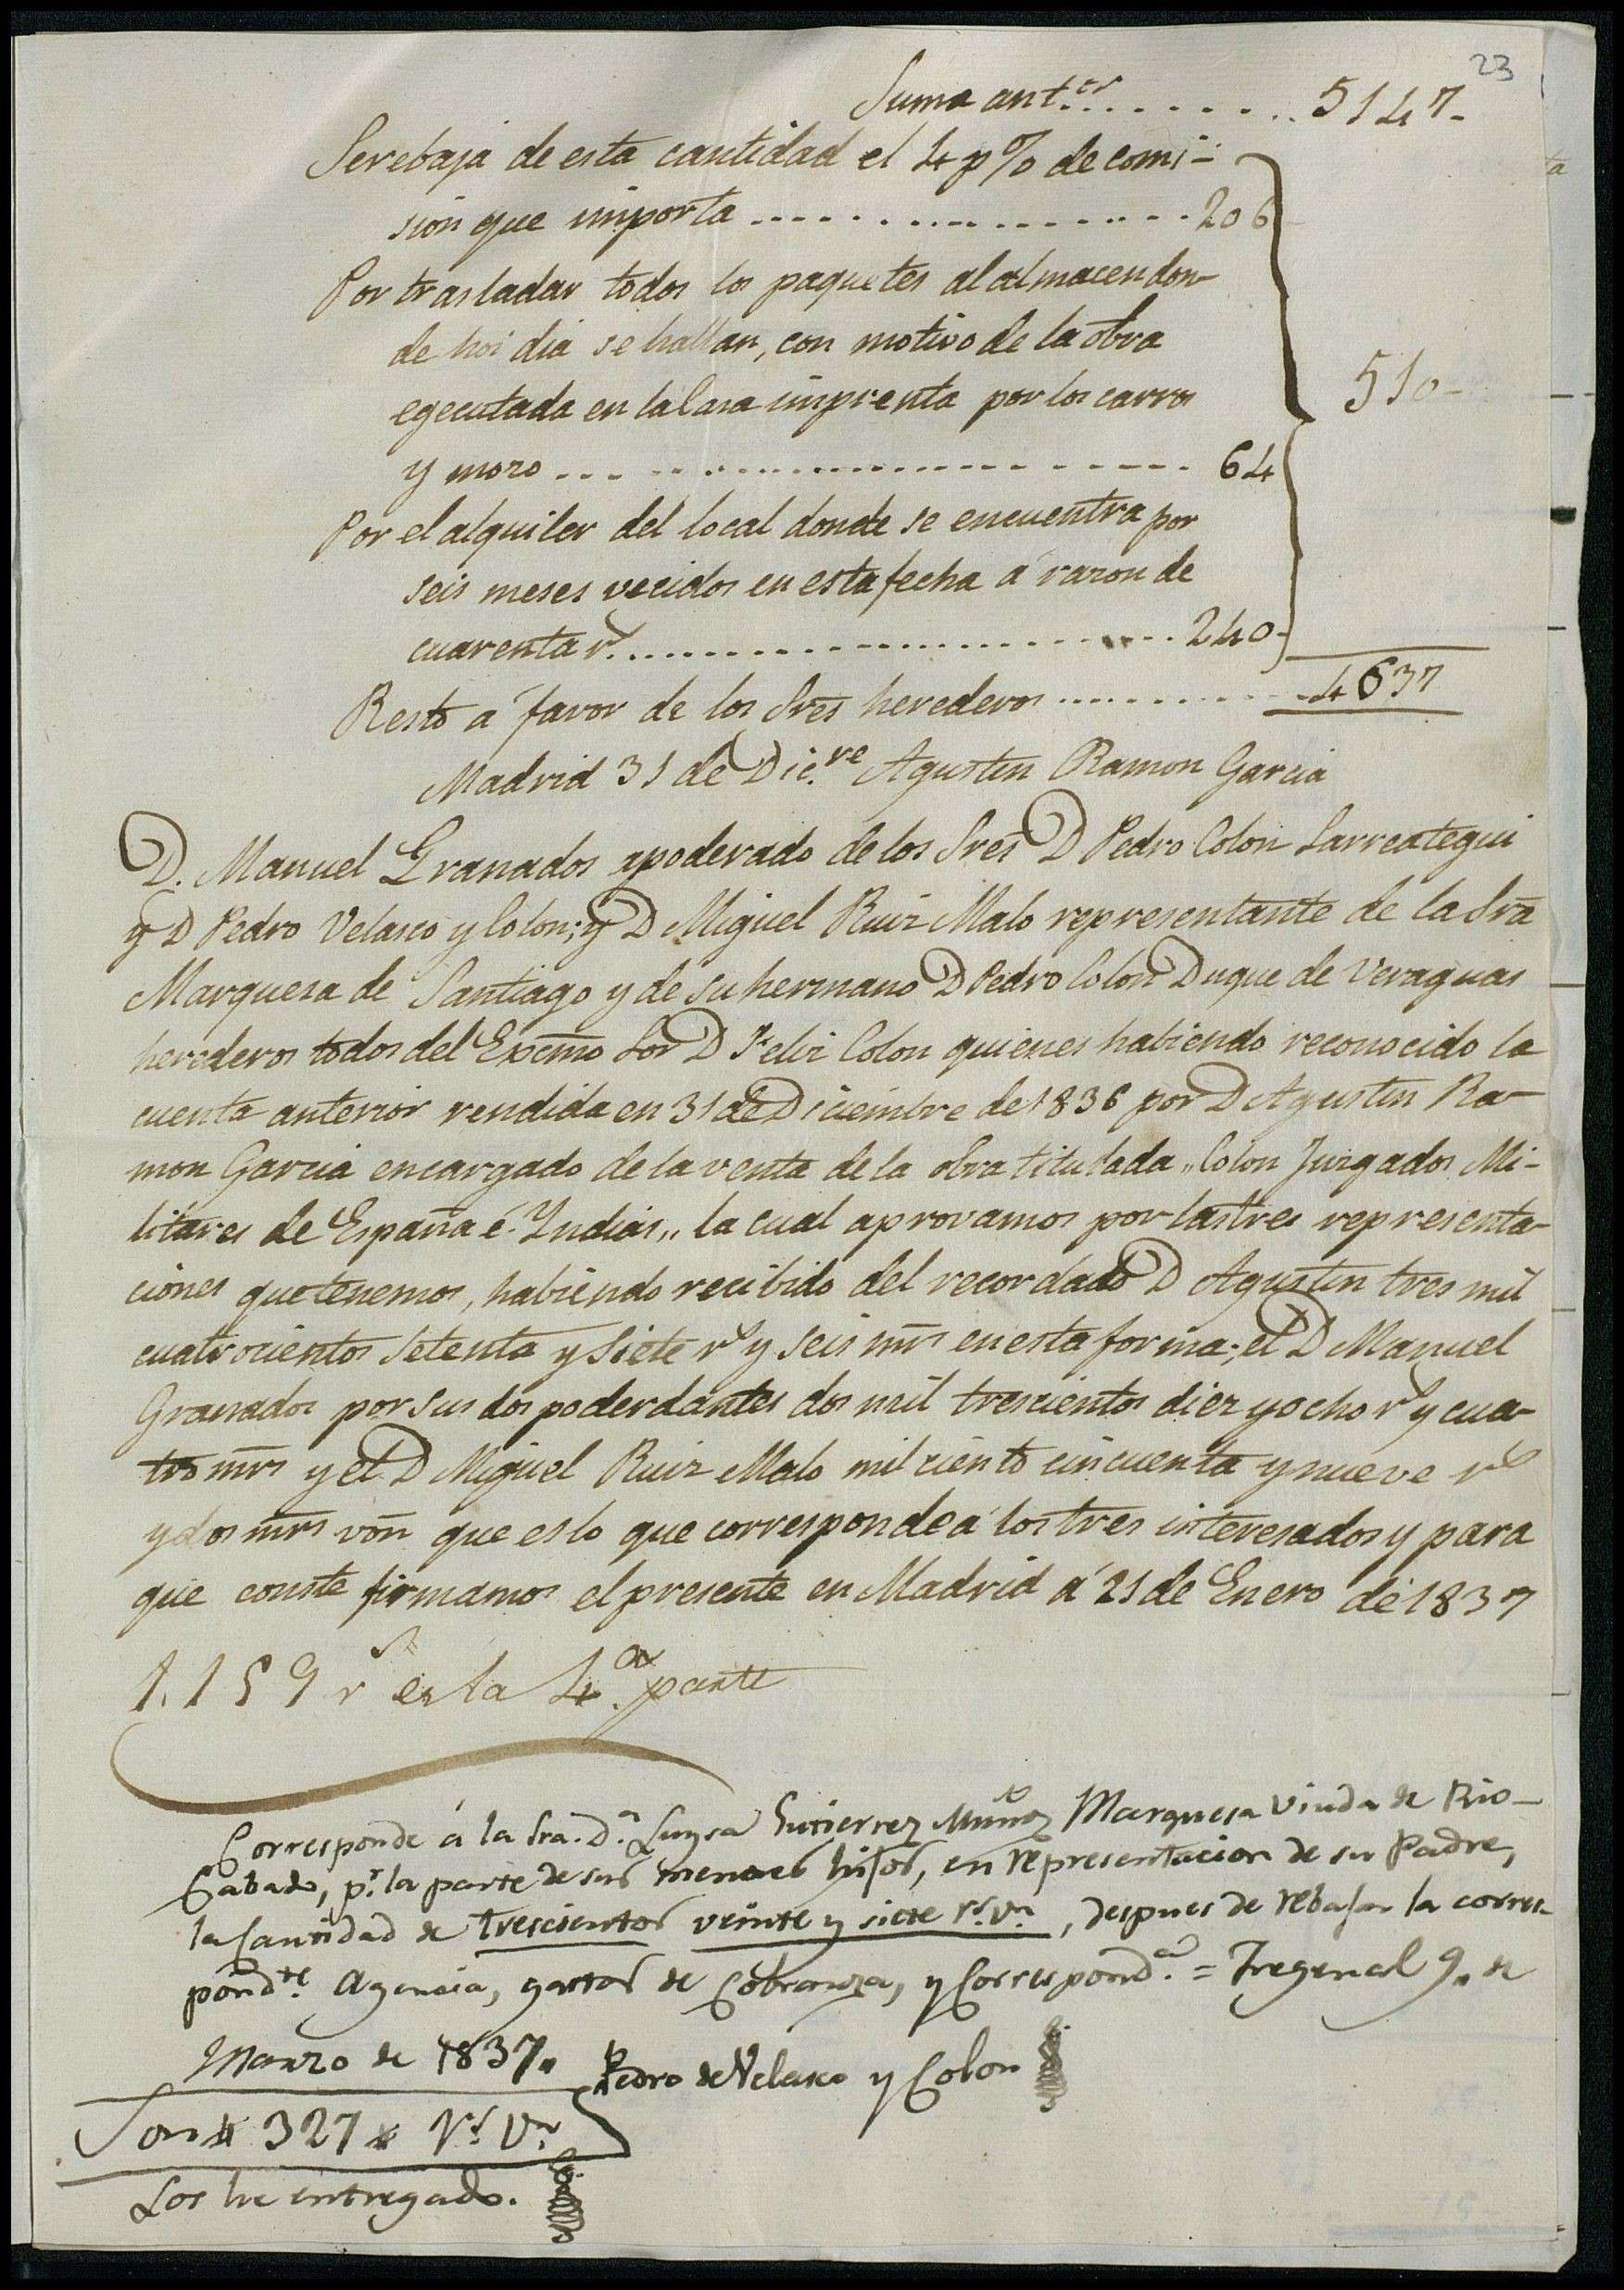 23
Suma ant.or . . . . . . . 5147-
Se rebaja de esta cantidad el 4 p% de comi-
sion que importa ................ 206
Por trasladar todos los paquetes al almacen don-
de hoi dia se hallan, con motivo de la obra
egecutada en la Casa imprenta por los carros
y mozo ................ 64
510-
Por el alquiler del local donde se encuentra por
seis meses vecidos en esta fecha á razon de
cuarenta rs. ................ 240-
Resto á favor de los Sres herederos .......... 4637
Madrid 31 de Dic.re Agustin Ramon Garcia
D. Manuel Granados apoderado de los Sres D Pedro Colon Larreategui
y D Pedro Velasco y Colon; y D Miguel Ruiz Malo representante de la Sra
Marquesa de Santiago y de su hermano D Pedro Colón Duque de Veraguas
herederos todos del Excmo Sor D Felix Colon quienes habiendo reconocido la
cuenta anterior rendida en 31 de Diciembre de 1836 por D Agustin Ra-
mon Garcia encargado de la venta de la obra titulada „Colon Juzgados Mi-
litares de España é Yndias„ la cual aprovamos por las tres representa-
ciones que tenemos, habiendo recibido del recordado D Agustin tres mil
cuatrocientos setenta y siete rs y seis mrs en esta forma; el D Manuel
Granados por sus dos poderdantes dos mil trescientos diez y ocho rs y cua-
tro mrs y el D Miguel Ruiz Malo mil ciento cincuenta y nueve rs
y dos mrs von que es lo que corresponde á los tres interesados y para
que conste firmamos el presente en Madrid á 21 de Enero de 1837
1.159 rs es la 4.a parte
Corresponde á la Sra. D.a Luysa Gutierrez Muñoz Marquesa Viuda de Rio-
Cabado, pr. la parte de sus menores hijos, en representacion de su Padre,
la Cantidad de trescientos veinte y siete rs. vn, despues de rebajar la corres-
pond.te Agencia, gastos de Cobranza, y Correspond.a = Fregenal 9. de
Marzo de 1837.
Pedro de Velasco y Colon
Son # 327 # rs. vn.
Los he entregado.